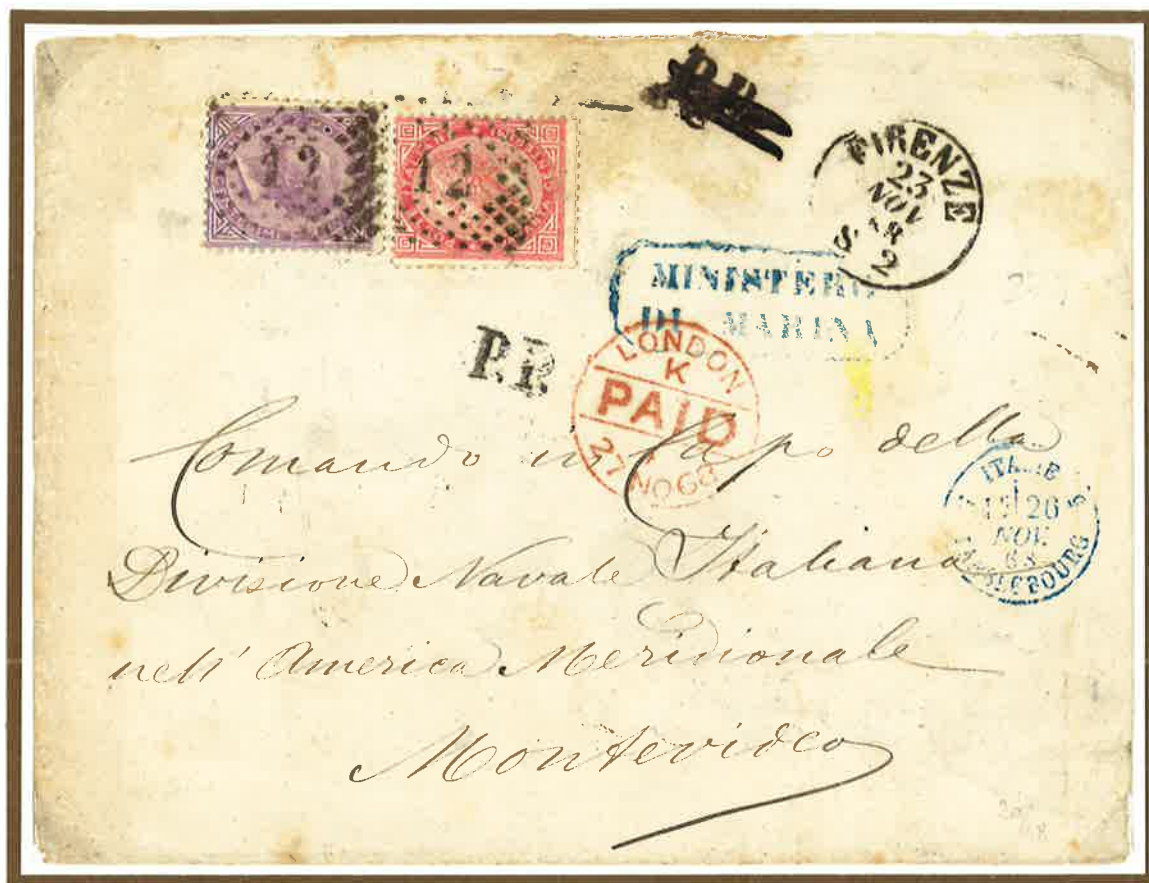 12
12
FIRENZE
23
NOV
68
2 S
MINISTERO
DI MARINA
P.P.
LONDON
K
PAID
27 NO 68
ITALIE
26
NOV.
68
Comando in Capo della
Divisione Navale Italiana
nell' America Meridionale
Montevideo